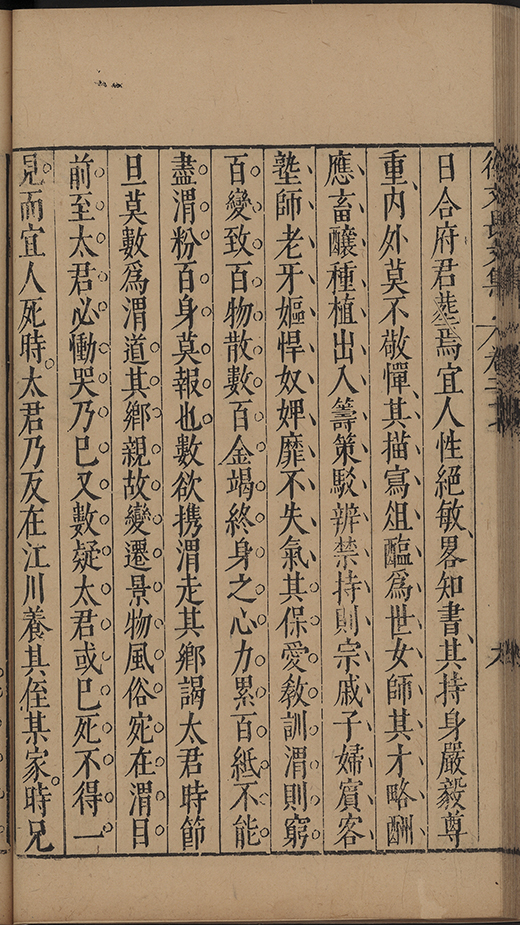 日合府君塟焉宜人性絕敏畧知書其持身嚴毅尊
重内外莫不敬憚其描寫俎醢為世女師其才略酬
應畜釀種植出入籌策駁辨禁持則宗戚子婦賓客
塾師老牙嫗悍奴婢靡不失氣其保愛教訓渭則窮
百變致百物散數百金竭終身之心力累百紙不能
盡渭粉百身莫報也數欲携渭走其鄉謁太君時節
旦莫數為渭道其鄉親故變遷景物風俗宛在渭目
前至太君必慟哭乃已又數疑太君或已死不得一
見而宜人死時太君乃反在江川養其侄某家時兄